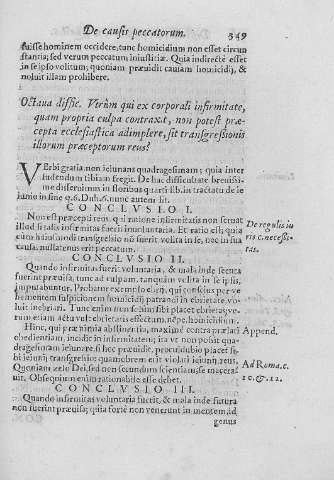 De causis peccatorum. 549
fuisse hominem occidere, tunc homicidium non esset circun
stantia; sed verum peccatum iniustitiæ. Quia indirecte esset
in se ipso volitum; quoniam præuidit cauiam homicidij, &
noluit illam prohibere.
Octaua diffic. Vtrùm qui ex corporali infirmitate,
quam propria culpa contraxit, non potest præ-
cepta ecclesiastica adimplere, sit transgressionis
illorum præceptorum reus?
VErbi gratia non ieiunans quadragesimam; quia inter
ludendum tibiam fregit. De hac difficultate breuissi-
me disseruimus in floribus quarti lib. in tractatu de ie
iunio in fine q.6. Dub.6. nunc autem sit.
CONCLVSIO I.
Non est præcepti reus, qui ratione infirmitatis non seruat
illud si talis infirmitas fuerit inuoluntaria. Et ratio est; quia
cum huiusmodi transgressio nō fuerit volita in se, nec in sua
causa, nullatenus erit peccatum.
De regulis iu
ris c. necessi-
tas.
CONCLVSIO II.
Quando infirmitas fuerit voluntaria, & mala inde secuta
fuerint præuisa; tunc ad culpam, tanquàm volita in se ipsis,
imputabuntur. Probatur exemplo
hementem sulpicionem homicidij patrandi in ebrietate vo-
luit inebriari. Tunc enim non se
tum etiam acta ebrietatis effectum, nēpe, homicidium.
Hinc, qui præ nimia abstinentia, maximè contra prælati
obedientiam, incidit in infirmitatem; ita vt non possit qua-
dragesimam ieiunare, si hoc præuidit, procul dubio placet si-
bi ieiunij transgressio; quamobrem erit violati ieiunij reus.
Quoniam zelo Dei, sed non secundum scientiam, se macera-
uit. Obsequium enim rationabile esse debet.
Append.
Ad Roma.c.
10.&.12.
CONCLVSIO III.
Quando infirmitas voluntaria fuerit, & mala inde sutura
non fuerint præuisa; quia fortè non venerunt in mentem, ad
genus